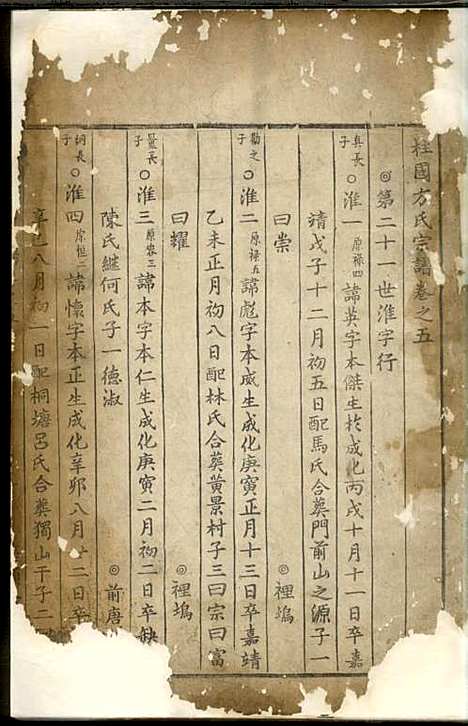 柱國方氏宗譜卷之五
◎第二十一世淮字行
真長子
○淮一 原祿四 諱英字本傑生於成化丙戌十月十一日卒嘉
靖戊子十二月初五日配馬氏合葬門前山之源子一
曰崇 ◎裡塢
勸之子
○淮二 原祿五 諱彪字本威生成化庚寅正月十三日卒嘉靖
乙未正月初八日配林氏合葬黃景村子三曰宗曰富
曰耀 ◎裡塢
長子
○淮三 諱本字本仁生成化庚寅二月初二日卒缺
陳氏繼何氏子一德淑 ◎前唐
長子
○淮四 諱懷字本正生成化辛卯八月十二日卒
辛巳八月初一日配桐塘呂氏合葬獨山干子二